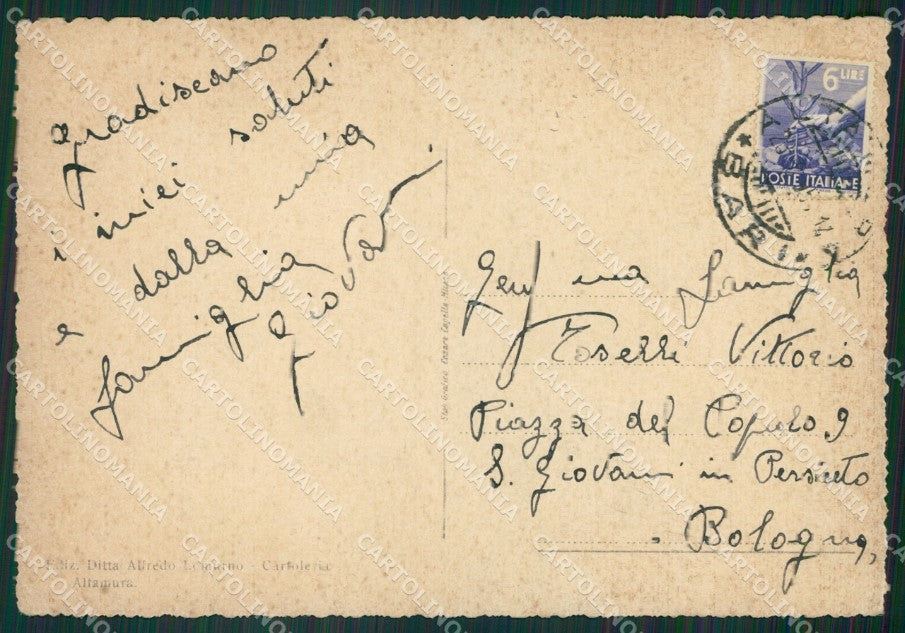 gradiscano
i miei saluti
e dalla mia
famiglia
Giovanni
6 LIRE
POSTE ITALIANE
ALTAMURA
* BARI *
Gen ma famiglia
Toselli Vittorio
Piazza del Popolo, 9
S. Giovanni in Persiceto
Bologna,
Ediz. Ditta Alfredo - Cartoleria
Altamura.
CARTOLINOMANIA